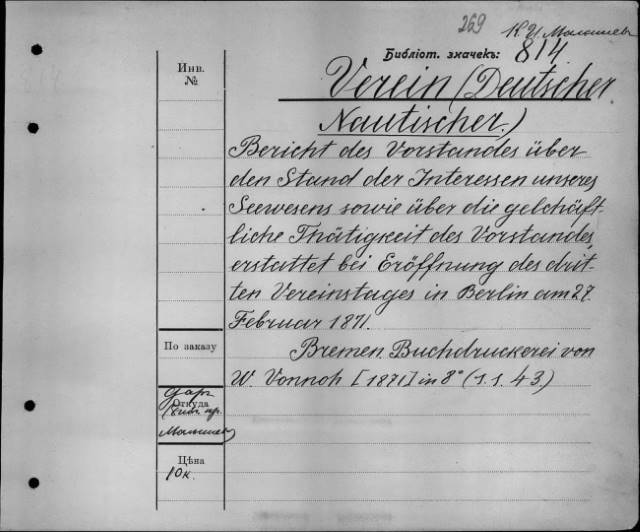 269
К. И. Малышев
Библіот. значекъ: 814
Инв.
№
Verein (Deutscher
Nautischer.)
Bericht des Vorstandes über
den Stand der Interessen unseres
Seewesens sowie über die gelchäft-
liche Thätigkeit des Vorstandes,
erstattet bei Eröffnung des drit-
ten Vereinstages in Berlin am 27
Februar 1871.
По заказу
Bremen. Buchdruckerei von
W. Vonnoh [1871] in 8° (S.S. 43)
дар
Откуда
Малышев
Цѣна
10к.